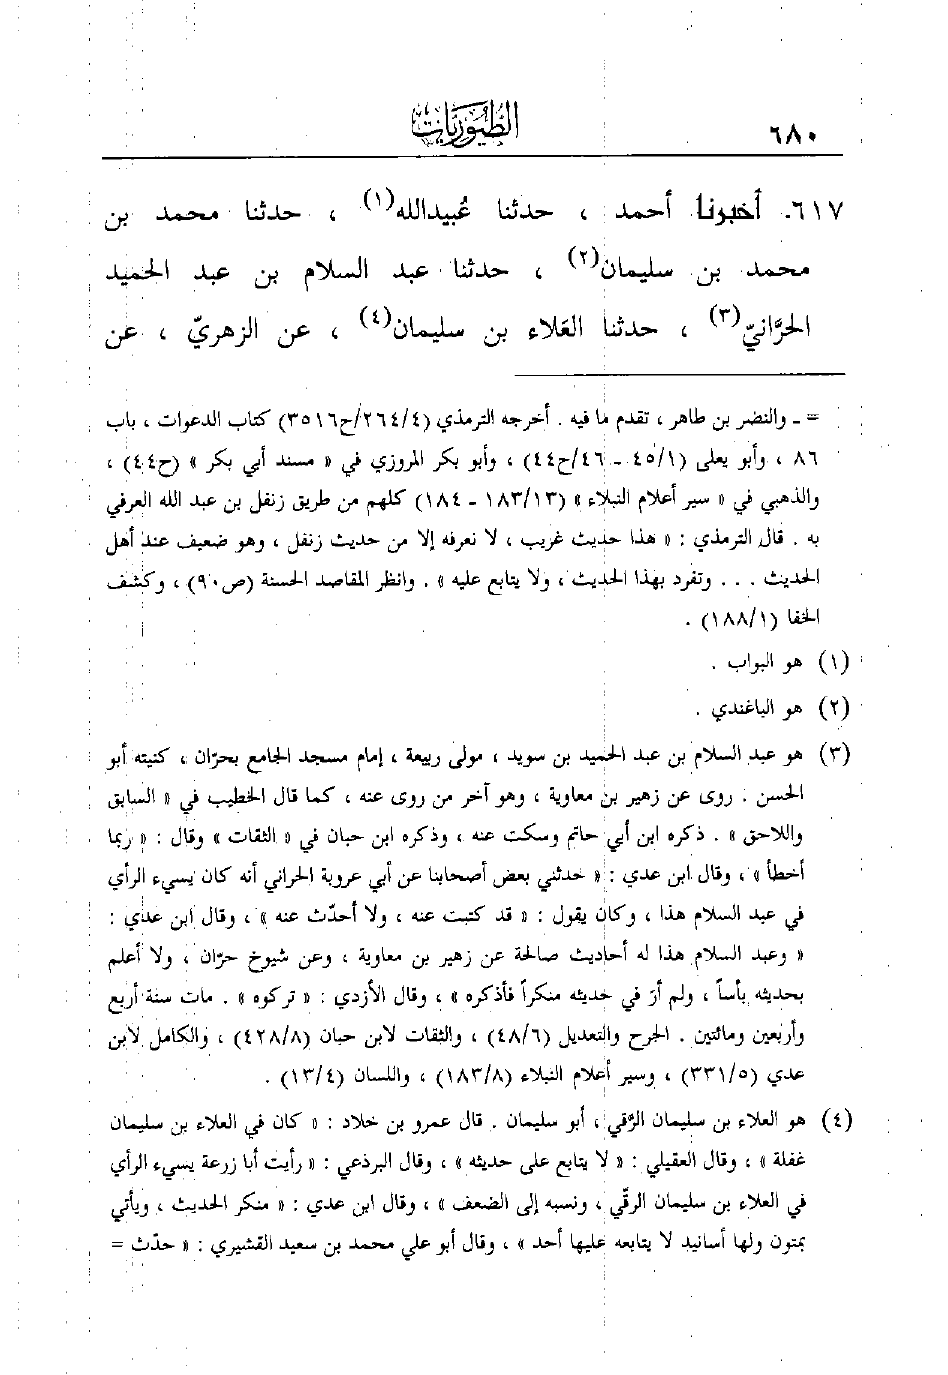 ٦٨٠
الطيوريات
٦١٧. أخبرنا أحمد ، حدثنا عُبيدالله(١) ، حدثنا محمد بن
محمد بن سليمان(٢) ، حدثنا عبد السلام بن عبد الحميد
الحَرَّانيّ(٣) ، حدثنا العَلاء بن سليمان(٤) ، عن الزهريّ ، عن
= ـ والنضر بن طاهر ، تقدم ما فيه . أخرجه الترمذي (٢٦٤/٤/ح٣٥١٦) كتاب الدعوات ، باب
٨٦ ، وأبو يعلى (٤٥/١ ـ ٤٦/ح٤٤) ، وأبو بكر المروزي في « مسند أبي بكر » (ح٤٤) ،
والذهبي في « سير أعلام النبلاء » (١٨٣/١٣ ـ ١٨٤) كلهم من طريق زنفل بن عبد الله العرفي
به . قال الترمذي : « هذا حديث غريب ، لا نعرفه إلا من حديث زنفل ، وهو ضعيف عند أهل
الحديث . . . وتفرد بهذا الحديث ، ولا يتابع عليه » . وانظر المقاصد الحسنة (ص٩٠) ، وكشف
الخفا (١٨٨/١) .
(١) هو البواب .
(٢) هو الباغندي .
(٣) هو عبد السلام بن عبد الحميد بن سويد ، مولى ربيعة ، إمام مسجد الجامع بحرّان ، كنيته أبو
الحسن . روى عن زهير بن معاوية ، وهو آخر من روى عنه ، كما قال الخطيب في « السابق
واللاحق » . ذكره ابن أبي حاتم وسكت عنه ، وذكره ابن حبان في « الثقات » وقال : « ربما
أخطأ » ، وقال ابن عدي : « حدثني بعض أصحابنا عن أبي عروبة الحراني أنه كان يسيء الرأي
في عبد السلام هذا ، وكان يقول : « قد كتبت عنه ، ولا أحدّث عنه » ، وقال ابن عدي :
« وعبد السلام هذا له أحاديث صالحة عن زهير بن معاوية ، وعن شيوخ حرّان ، ولا أعلم
بحديثه بأساً ، ولم أرَ في حديثه منكراً فأذكره » ، وقال الأزدي : « تركوه » . مات سنة أربع
وأربعين ومائتين . الجرح والتعديل (٤٨/٦) ، والثقات لابن حبان (٤٢٨/٨) ، والكامل لابن
عدي (٣٣١/٥) ، وسير أعلام النبلاء (١٨٣/٨) ، واللسان (١٣/٤) .
(٤) هو العلاء بن سليمان الرَّقي ، أبو سليمان . قال عمرو بن خلاد : « كان في العلاء بن سليمان
غفلة » ، وقال العقيلي : « لا يتابع على حديثه » ، وقال البرذعي : « رأيت أبا زرعة يسيء الرأي
في العلاء بن سليمان الرقّي ، ونسبه إلى الضعف » ، وقال ابن عدي : « منكر الحديث ، ويأتي
بمتون ولها أسانيد لا يتابعه عليها أحد » ، وقال أبو علي محمد بن سعيد القشيري : « حدّث =